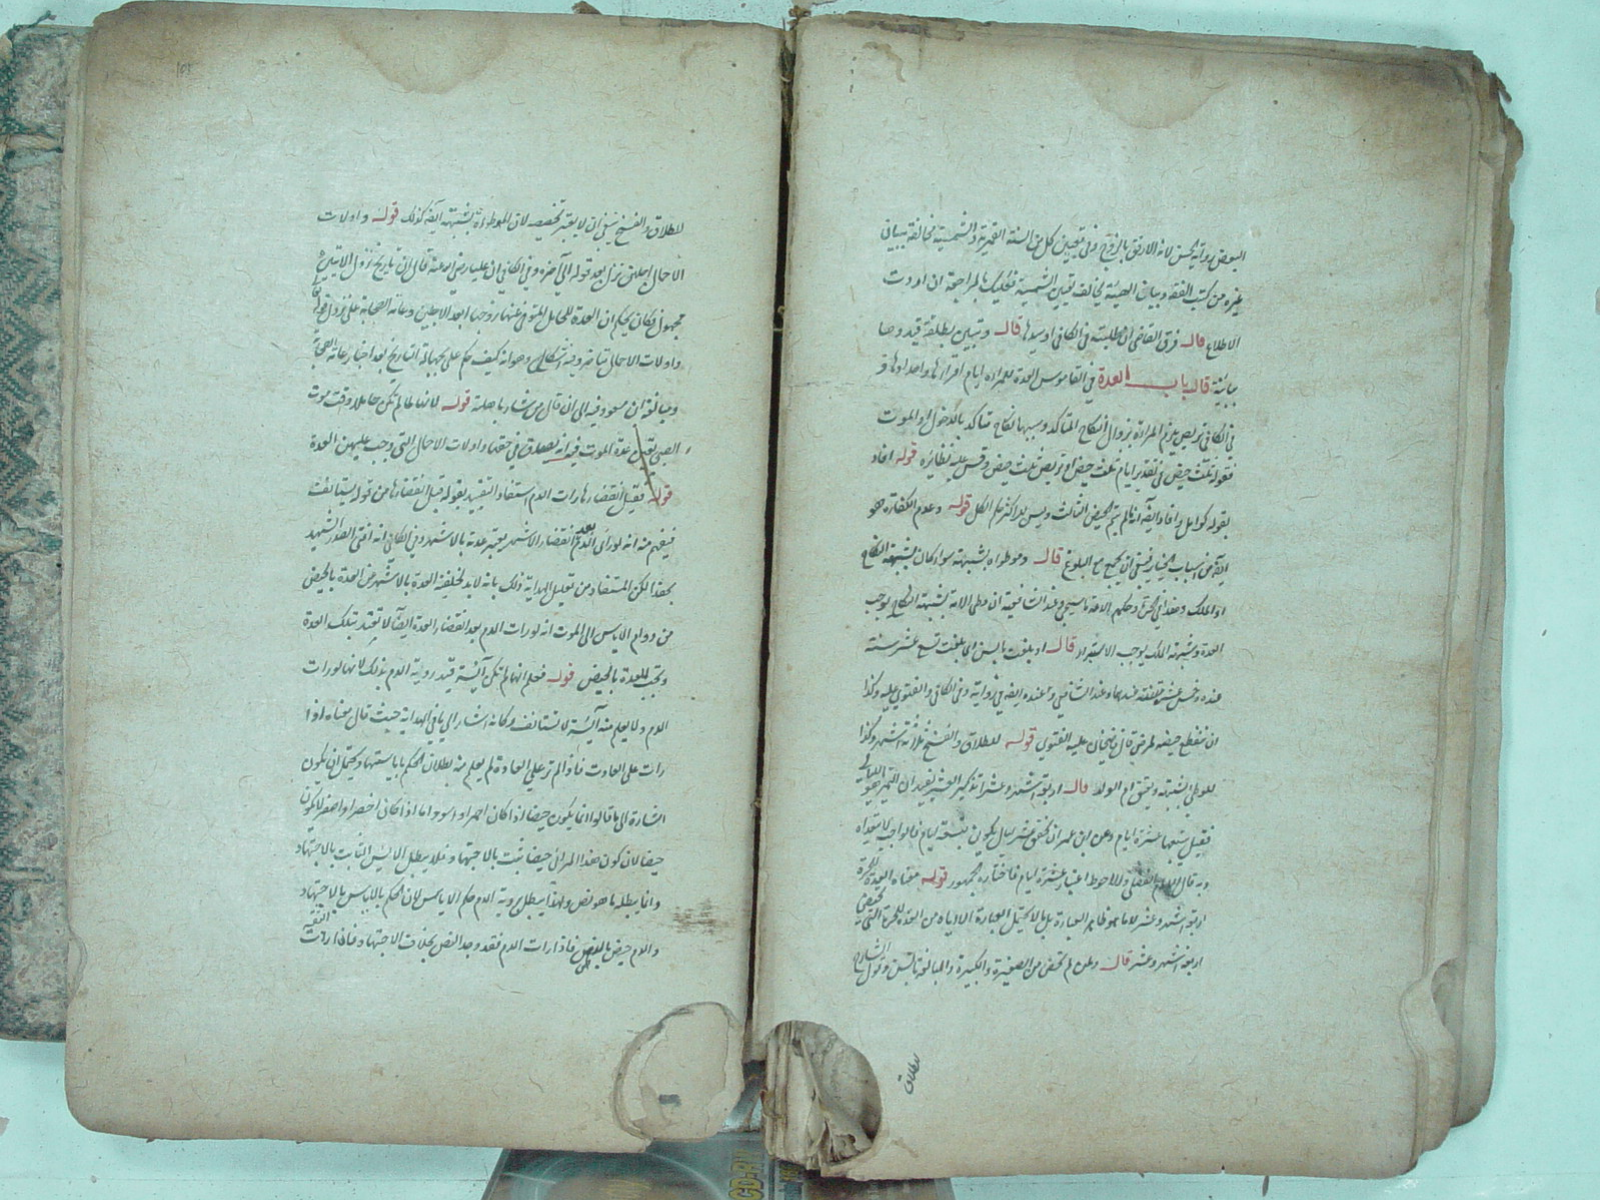 البعض رواية الحسن لانه الارفق بالزوج وفي تعيين كل من السنة القمرية والشمسية مخالفة بيناني
غيره من كتب الفقه وبيان الهيئة يخالف تعيين الشمسية فعليك بالمراجعة ان اردت
الاطلاع قال فرق القاضي ان طلبته في الكافي او سيدها قال وتبين بطلقة قيد وصا
بائنة قال باب العدة في القاموس العدة للمرأة ايام اقراءها واحدادها و
في الكافي تربص يلزم المرأة بزوال النكاح المتاكد وسببها نكاح متاكد بالدخول او الموت
فقوله ثلث حيض في تقدير ايام ثلث حيض او تربص ثلث حيض وقس عليه نظائره قوله افاد
بقوله كوامل وافاد ايضا انه ما لم يتم الحيض الثالث وليس للاكثر حكم الكل قوله وعدم الكفاءة هو
اية من اسباب الخيار فينبغي ان يجمع مع البلوغ قال وموطوءة بشبهة سواء كان بشبهة النكاح
او الملك وهذا في الحرة وحكم الامة ما سيجيء وعند الشافعية ان وطى الامة بشبهة النكاح يوجب
العدة وشبهة الملك يوجب الاستبراء قال او بلغت بالسن اى بلغت تسع عشر سنة
عنده وخمس عشرة سنة عندهما وعند الشافعي وعنده ايضا في رواية وفي الكافي والفتوى عليه وكذا
ان ينقطع حيضه لمرض قال قاضيخان عليه الفتوى قوله للطلاق والفسخ ثلاثة اشهر وكذا
للوطى بالشبهة وعتق ام الولد قال اربعة اشهر وعشرا تذكير العشر يفيد ان المميز هو الليالي
فقيل يتبعها عشرة ايام وعن ابن عمر ان تحقق عشر ليال يكون بتسعة ايام فالواجب
وبه قال والاحوط اعتبار عشرة ايام فاختاره الجمهور قوله معناه العدة للحرة
اربعة اشهر وعشر لانه ظاهر العبارة بل ما لا يحتمل العبارة الا اياه من العدة للحرة التي
اربعة اشهر وعشر قال ولمن لم تحض من الصغيرة والكبيرة والبالغة بالسن وقول الشارح
للطلاق
للطلاق والفسخ ينبغي ان لا يعتبر تخصيصه لان الموطوءة بشبهة ايضا كذلك قوله و اولات
الاحمال اجلهن نزل بعد قوله الى آخره وفي الكافي ان عليا رضي الله عنه قال ان تاريخ نزول الايتين
مجهول فكان يحكم ان العدة للحامل المتوفى عنها زوجها ابعد الاجلين وعامة الصحابة على نزول قوله
واولات الاحمال متاخر وفيه اشكال وهو انه كيف حكم على بجهالة التاريخ بعد اخبار عامة الصحابة
ومبالغة ابن مسعود فيه الى ان قال من شاء باهلته قوله لانها لما لم تكن حاملا وقت موت
الصبي تعين عدة الموت فيه انه يصدق في حقها واولات الاحمال التي وجب عليهن العدة
قوله فقيل انقضاءها رات الدم استفاد التقييد بقوله قبل انقضاءها من قوله يستانف
فيفهم منه انه لو راى الدم بعد انقضاء الاشهر معتبر عدته بالاشهر وفي الكافي انه افتى الصدر الشهيد
بهذا لكن المستفاد من تعليل الهداية ذلك بانه لابد لخليفة العدة بالاشهر عن العدة بالحيض
من دوام الاياس الى الموت انه لو رات الدم بعد انقضاء العدة ايضا لا تعتد بتلك العدة
وتجب العدة بالحيض قوله فعلم انها لم تكن آئسة قيد روية الدم بذلك لانها لو رات
الدم ولا يعلم منه آئسة لا تستانف وكانه اشار الى ما في الهداية حيث قال معناه اذا
رات على العادت فاذا لم تر على العادة لم يعلم منه بطلان الحكم باياسها ويحتمل ان يكون
اشارة الى ما قالوا انما يكون حيضا اذا كان احمر او اسود اما اذا كان اخضر او اصفر لا يكون
حيضا لان كون هذا المرائى حيضا ثبت بالاجتهاد فلا يبطل الاياس الثابت بالاجتهاد
وانما يبطله ما هو نص ولهذا يبطل بروية الدم حكم الاياس لان الحكم بالاياس بالاجتهاد
والدم حيض بالنص فاذا رات الدم فقد وجد النص بخلاف الاجتهاد فاذا اردت